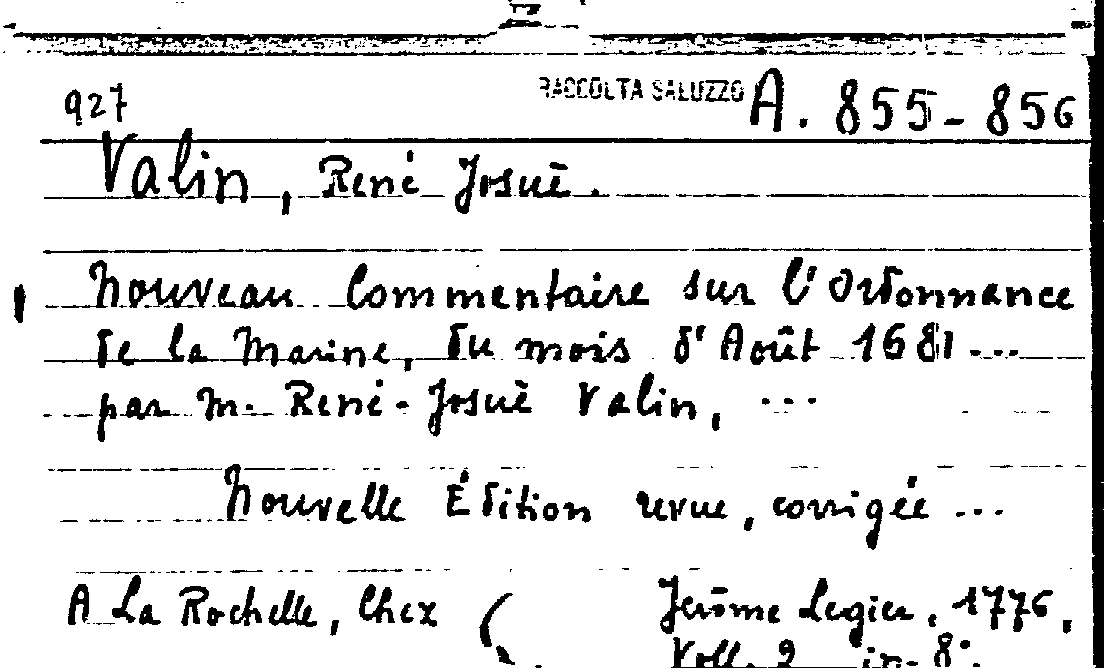 927 RACCOLTA SALUZZO A. 855-856
Valin, René Josuè.
Nouveau Commentaire sur l'Ordonnance
de la Marine, du mois d'Août 1681...
par M. René-Josuè Valin, ...
Nouvelle Édition revue, corrigée ...
A La Rochelle, Chez ( Jerôme Legier, 1776,
Voll. 2 in-8°.